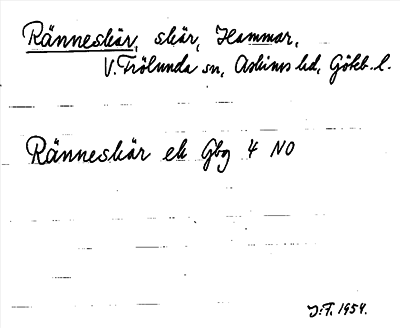 Ränneskär, skär, Hammar,
V. Frölunda sn, Askims hd, Göteb. l.
Ränneskär ek Gbg 4 NO
J.F. 1954.